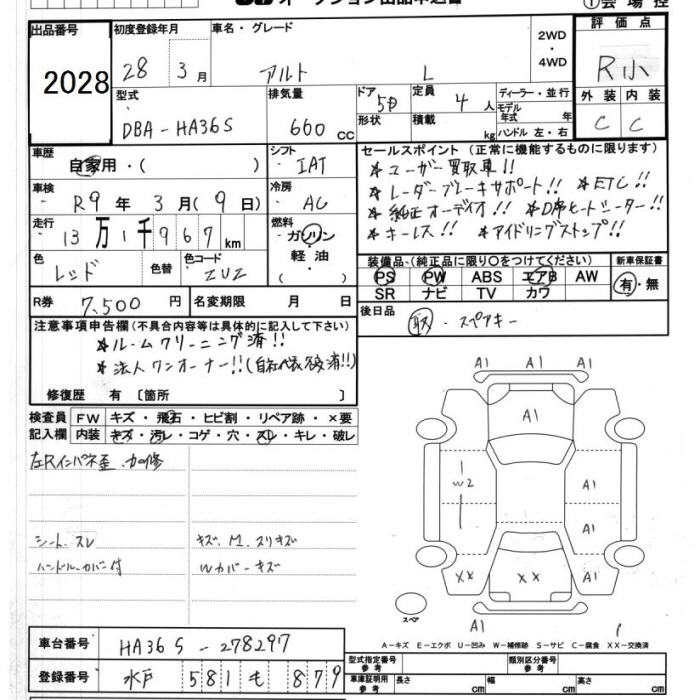 オークション出品申込書
①会場控
出品番号 2028
初度登録年月 28 3月
車名・グレード アルト L
2WD ・ 4WD
評価点 R小
外装 内装 C C
型式 DBA-HA36S
排気量 660 CC
ドア 5D 形状
定員 4人 積載 kg
ディーラー・並行
モデル年式 年
ハンドル 左・右
車歴 自家用・( )
シフト IAT
車検 R9年3月(9日)
冷房 AC
走行 13万1千967km
燃料 ガソリン 軽油 ・ ( )
色 レッド 色替
色コード ZUZ
R券 7,500円
名変期限 月 日
セールスポイント (正常に機能するものに限ります)
★ユーザー買取車!!
★レーダーブレーキサポート!! ★ETC!!
★純正オーディオ!! ★D席ヒートシーター!!
★キーレス!! ★アイドリングストップ!!
装備品 (純正品に限り○をつけてください)
PS PW ABS エアB AW
SR ナビ TV カワ
新車保証書 有・無
後日品 取・スペアキー
注意事項申告欄 (不具合内容等は具体的に記入して下さい)
★ルームクリーニング済!!
★法人ワンオーナー!!
修復歴 有 [箇所 ]
検査員記入欄
FW キズ・飛石・ヒビ割・リペア跡・×要
内装 キズ・汚レ・コゲ・穴・スレ・キレ・破レ
左Rインパネ歪 加修
シート、スレ キズ、M、スリキズ
ハンドルカバー付 Wカバーキズ
A1 A1 A1
A1
W2 A1
A1
XX XX A1
A1
スペア
A-キズ E-エクボ U-凹み W-補修跡 S-サビ C-腐食 XX-交換済
車台番号 HA36S-278297
登録番号 水戸 581 も 879
型式指定番号 参考
類別区分番号 参考
車庫証明用 参考 長さ cm 幅 cm 高さ cm